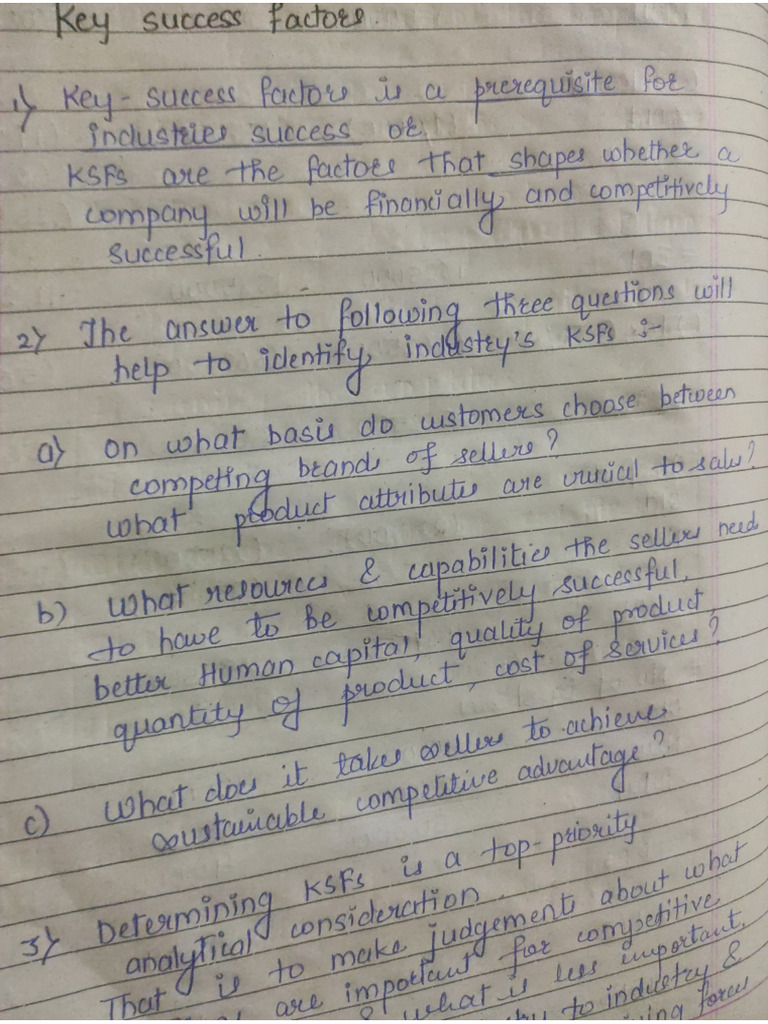 Key success factors.
1) Key-success factors is a prerequisite for
industries success or.
KSFs are the factors that shapes whether a
company will be financially and competitively
successful.
2) The answer to following three questions will
help to identify, industry's KSFs :-
a) on what basis do customers choose between
competing brands of sellers?
what product attributes are crucial to sales?
b) what resources & capabilities the sellers need
to have to be competitively successful,
better Human capital, quality of product,
quantity of product, cost of services?
c) what does it takes sellers to achieve
sustainable competitive advantage?
3) Determining KSFs is a top-priority
analytical consideration.
That is to make judgements about what
are important for competitive
& what is less important.
to industry &
forces